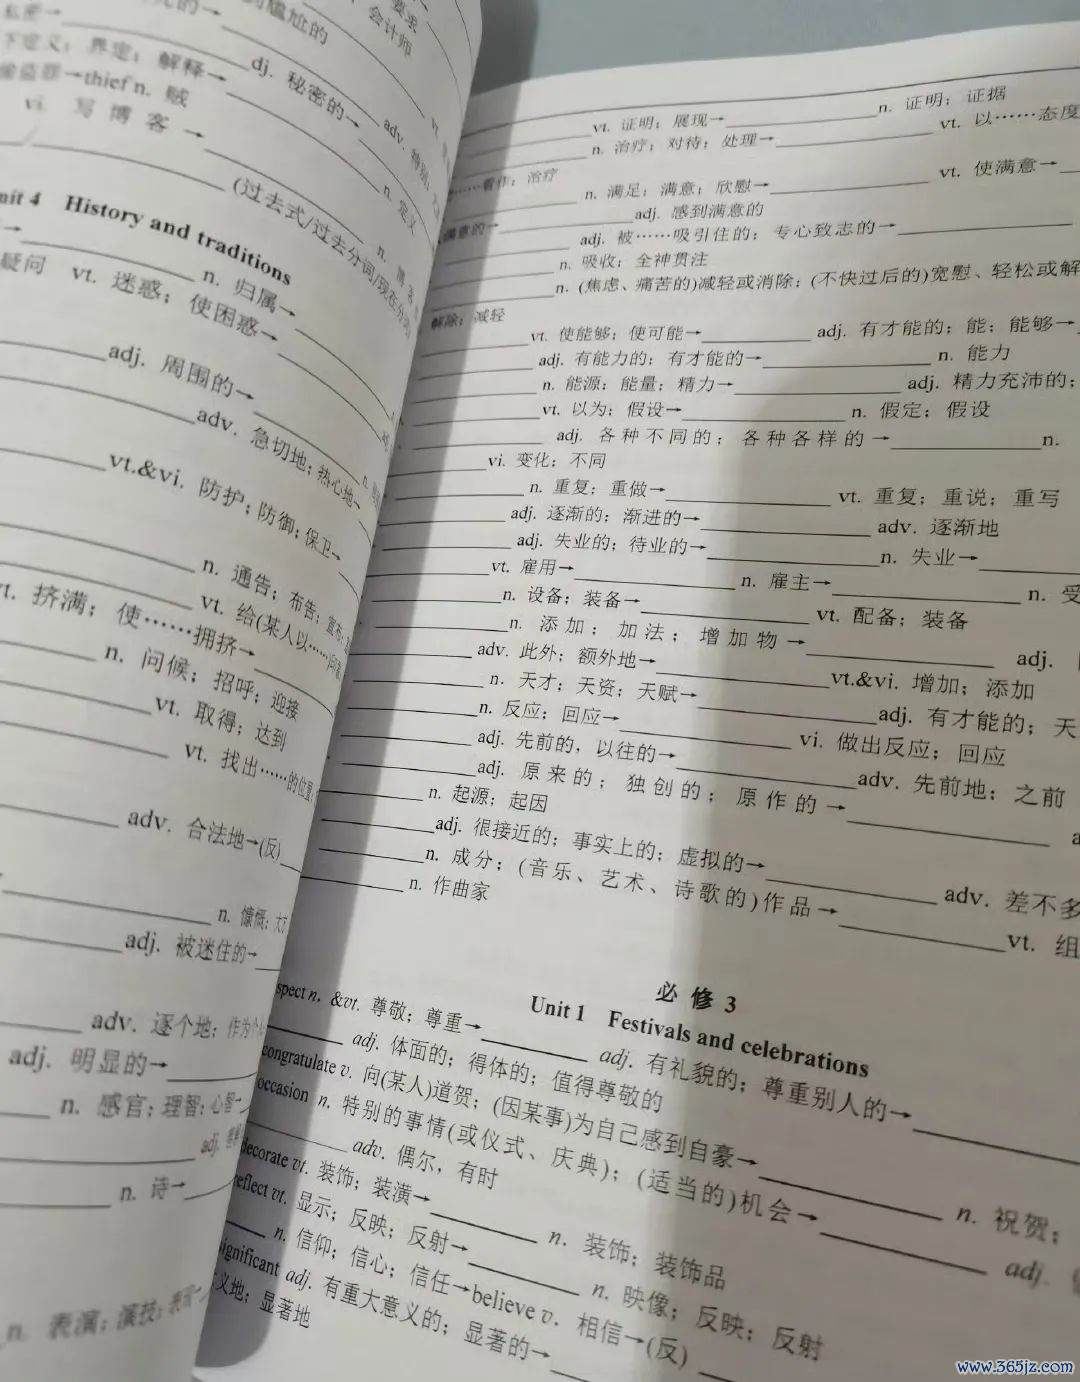 要求
私密→
的尴尬的
会计师
下定义；界定；解释→
dj. 秘密的→
盗罪→thief n. 贼
adv. 特别
vt.
vi. 写博客→
n. 定义
(过去式/过去分词/现在分词)
n. 博客
nit 4 History and traditions
n. 归属→
疑问 vt. 迷惑；使困惑→
adj. 周围的→
adv. 急切地；热心地→
vt.&vi. 防护；防御；保卫→
n. 通告；布告；宣布
vt. 给(某人以……)
vt. 挤满；使……拥挤→
n. 问候；招呼；迎接
vt. 取得；达到
vt. 找出……的位置
adv. 合法地→(反)
n. 慷慨；大方
adj. 被迷住的→
adv. 逐个地；作为个
adj. 明显的→
n. 感官；理智；心智→
adj.
n. 诗→
n. 表演；演技；表演
vt. 证明；展现→ n. 证明；证据
n. 治疗；对待；处理→ vt. 以……态度
……看作；治疗
n. 满足；满意；欣慰→ vt. 使满意→
满意的→ adj. 感到满意的
adj. 被……吸引住的；专心致志的→
n. 吸收；全神贯注
n. (焦虑、痛苦的)减轻或消除；(不快过后的)宽慰、轻松或解
解除；减轻
vt. 使能够；使可能→ adj. 有才能的；能；能够→
adj. 有能力的；有才能的→ n. 能力
n. 能源；能量；精力→ adj. 精力充沛的；
vt. 以为；假设→ n. 假定；假设
adj. 各种不同的；各种各样的→ n.
vi. 变化；不同
n. 重复；重做→ vt. 重复；重说；重写
adj. 逐渐的；渐进的→ adv. 逐渐地
adj. 失业的；待业的→ n. 失业→
vt. 雇用→ n. 雇主→ n. 受
n. 设备；装备→ vt. 配备；装备
n. 添加；加法；增加物→ adj.
adv. 此外；额外地→ vt.&vi. 增加；添加
n. 天才；天资；天赋→ adj. 有才能的；天
n. 反应；回应→ vi. 做出反应；回应
adj. 先前的，以往的→ adv. 先前地；之前
adj. 原来的；独创的；原作的→
n. 起源；起因
adj. 很接近的；事实上的；虚拟的→ adv. 差不多
n. 成分；(音乐、艺术、诗歌的)作品→ vt. 组
n. 作曲家
必修3
Unit 1 Festivals and celebrations
spect n. &vt. 尊敬；尊重→ adj. 有礼貌的；尊重别人的→
adj. 体面的；得体的；值得尊敬的
congratulate v. 向(某人)道贺；(因某事)为自己感到自豪→ n. 祝贺；
occasion n. 特别的事情(或仪式、庆典)；(适当的)机会→ adj.
adv. 偶尔，有时
decorate vt. 装饰；装潢→ n. 装饰；装饰品
reflect vt. 显示；反映；反射→ n. 映像；反映；反射
n. 信仰；信心；信任→believe v. 相信→(反)
significant adj. 有重大意义的；显著的→
义地；显著地
www.365jz.com